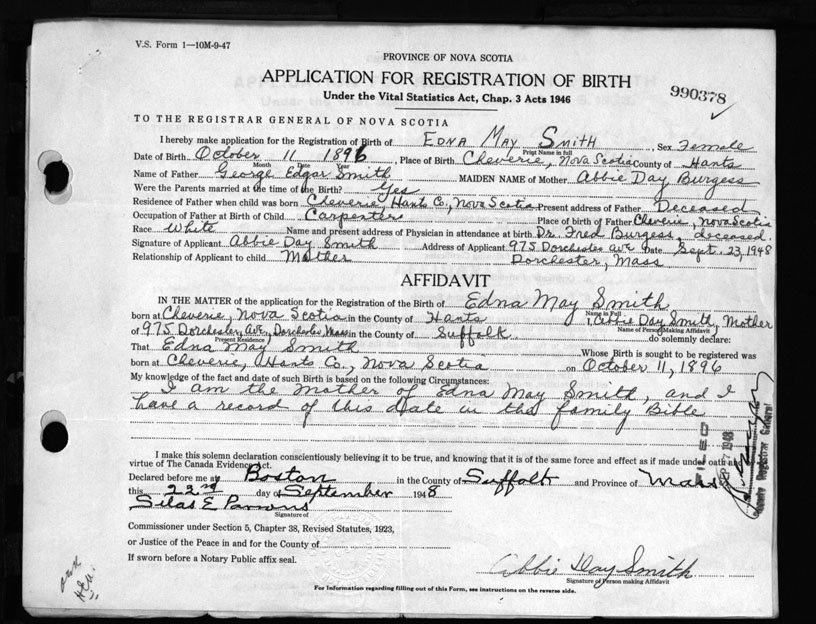 V.S. Form 1—10M-9-47
PROVINCE OF NOVA SCOTIA
APPLICATION FOR REGISTRATION OF BIRTH
Under the Vital Statistics Act, Chap. 3 Acts 1946
990378
TO THE REGISTRAR GENERAL OF NOVA SCOTIA
I hereby make application for the Registration of Birth of EDNA MAY SMITH, Sex Female
Print Name in full
Date of Birth October 11 1896, Place of Birth Cheverie, Nova Scotia County of Hants
Month Date Year
Name of Father George Edgar Smith MAIDEN NAME of Mother Abbie Day Burgess
Were the Parents married at the time of the Birth? Yes
Residence of Father when child was born Cheverie, Hants Co., Nova Scotia Present address of Father Deceased
Occupation of Father at Birth of Child Carpenter Place of birth of Father Cheverie, Nova Scotia
Race White Name and present address of Physician in attendance at birth Dr. Fred Burgess, deceased.
Signature of Applicant Abbie Day Smith Address of Applicant 975 Dorchester Ave. Date Sept. 23, 1948
Relationship of Applicant to child Mother Dorchester, Mass
AFFIDAVIT
IN THE MATTER of the application for the Registration of the Birth of Edna May Smith
Name in Full
born at Cheverie, Nova Scotia in the County of Hants I, Abbie Day Smith, Mother
Name of Person Making Affidavit
of 975 Dorchester Ave, Dorchester, Mass in the County of Suffolk do solemnly declare:
Present Residence
That Edna May Smith Whose Birth is sought to be registered was
born at Cheverie, Hants Co., Nova Scotia on October 11, 1896
My knowledge of the fact and date of such Birth is based on the following Circumstances:
I am the mother of Edna May Smith, and I
have a record of this date in the family Bible
I make this solemn declaration conscientiously believing it to be true, and knowing that it is of the same force and effect as if made under oath
virtue of The Canada Evidence Act.
Declared before me at Boston in the County of Suffolk and Province of Mass
this 22nd day of September 1948
Silas E Parsons
Signature of
Commissioner under Section 5, Chapter 38, Revised Statutes, 1923,
or Justice of the Peace in and for the County of
If sworn before a Notary Public affix seal.
Abbie Day Smith
Signature of Person making Affidavit
For Information regarding filling out of this Form, see instructions on the reverse side.
Deputy Registrar General